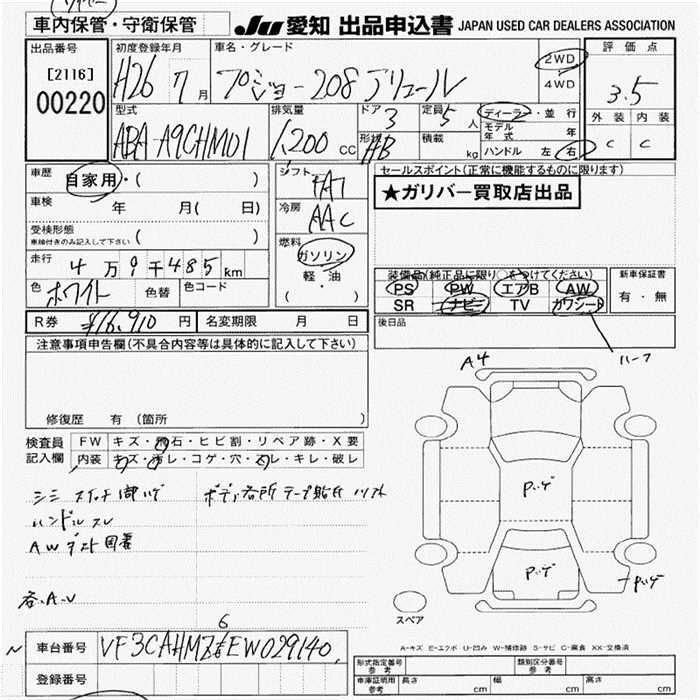 車内保管・守衛保管
JU 愛知 出品申込書 JAPAN USED CAR DEALERS ASSOCIATION
出品番号
[2116]
00220
初度登録年月
H26 7 月
車名・グレード
プジョー208 アリュール
2WD
4WD
評価点
3.5
外装 内装
C C
型式
ABA-A9CHM01
排気量
1,200 CC
ドア 3
形状 HB
定員 5 人
積載 kg
ディーラー・並行
モデル年式 年
ハンドル 左 右
車歴 自家用・( )
車検 年 月( 日)
受検形態
車検付きのみ記入して下さい ( )
走行 4万9千485km
色 ホワイト 色替 色コード
シフト
冷房 AAC
燃料
ガソリン
軽・油
( )
セールスポイント(正常に機能するものに限ります)
★ガリバー買取店出品
装備品(純正品に限り○をつけてください)
PS PW エアB AW
SR ナビ TV カワシート
ハーフ
新車保証書
有・無
後日品
R券 ¥16,910 円 名変期限 月 日
注意事項申告欄(不具合内容等は具体的に記入して下さい)
修復歴 有 (箇所 )
検査員記入欄
FW キズ・飛石・ヒビ割・リペア跡・X要
内装 キズ・汚レ・コゲ・穴・スレ・キレ・破レ
シミ スイッチ
ハンドルスレ
AWダスト固着
A4
Pハゲ
Pハゲ
Pハゲ
スペア
A-キズ E-エクボ U-凹み W-補修跡 S-サビ C-腐食 XX-交換済
車台番号 VF3CAHMZ6EW029140
6
登録番号
形式指定番号 参考
類別区分番号 参考
車庫証明用 参考 長さ cm 幅 cm 高さ cm